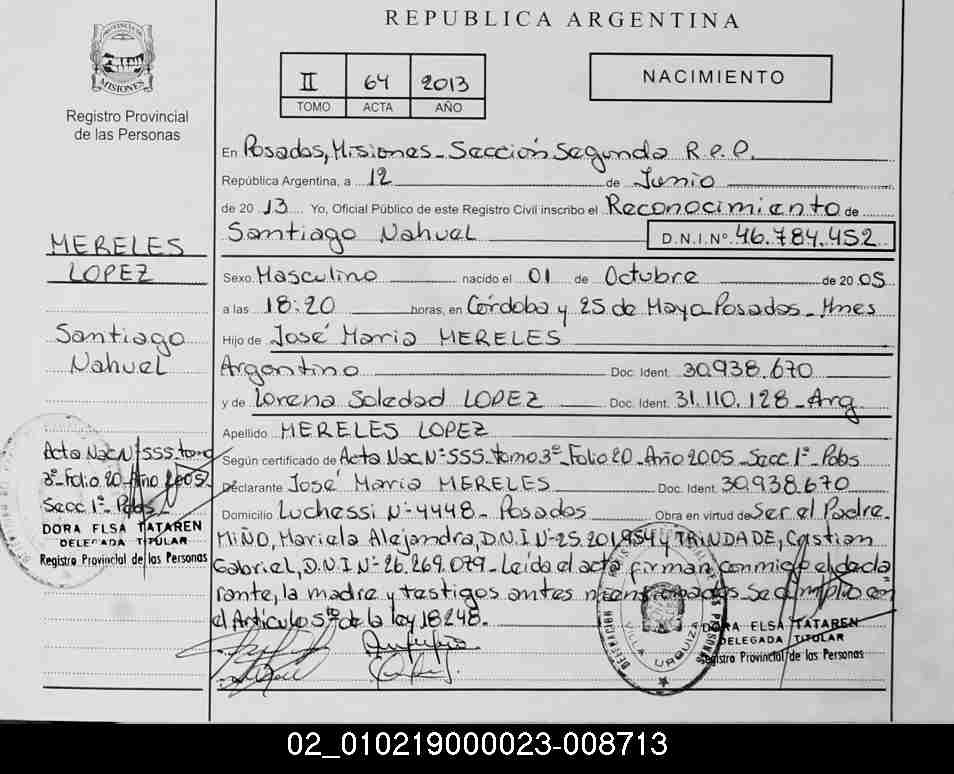 REPUBLICA ARGENTINA
PROVINCIA DE
MISIONES
Registro Provincial
de las Personas
II 64 2013
TOMO ACTA AÑO
NACIMIENTO
En Posadas, Misiones - Sección Segunda R.P.P.
República Argentina, a 12 de Junio
de 20 13 Yo, Oficial Público de este Registro Civil inscribo el Reconocimiento de
Santiago Nahuel D.N.I.Nº 46.784.452
MERELES
LOPEZ
Santiago
Nahuel
Sexo Masculino nacido el 01 de Octubre de 20 05
a las 18:20 horas, en Córdoba y 25 de Mayo Posadas - Mnes
Hijo de José Maria MERELES
Argentino Doc. Ident. 30.938.670
y de Lorena Soledad LOPEZ Doc. Ident. 31.110.128 - Arg.
Apellido MERELES LOPEZ
Según certificado de Acta Nac. Nº 555 - tomo 3º - Folio 20 - Año 2005 - Secc 1º - Pdas
Declarante José Maria MERELES Doc. Ident. 30.938.670
Domicilio Luchessi Nº 4448 - Posadas Obra en virtud de Ser el Padre.
MIÑO, Mariela Alejandra, D.N.I Nº 25.201.954 y TRINDADE, Castian
Gabriel, D.N.I Nº 26.269.079 - Leída el acta firman conmigo el decla
rante, la madre y testigos antes mencionados - Se cumplió con
el Artículo 5º de la ley 18248.
Acta Nac. Nº 555 - tomo
3º - Folio 20 - Año 2005
Secc 1º - Pdas
DORA ELSA TATAREN
DELEGADA TITULAR
Registro Provincial de las Personas
VILLA URQUIZA
DORA ELSA TATAREN
DELEGADA TITULAR
Registro Provincial de las Personas
02_010219000023-008713